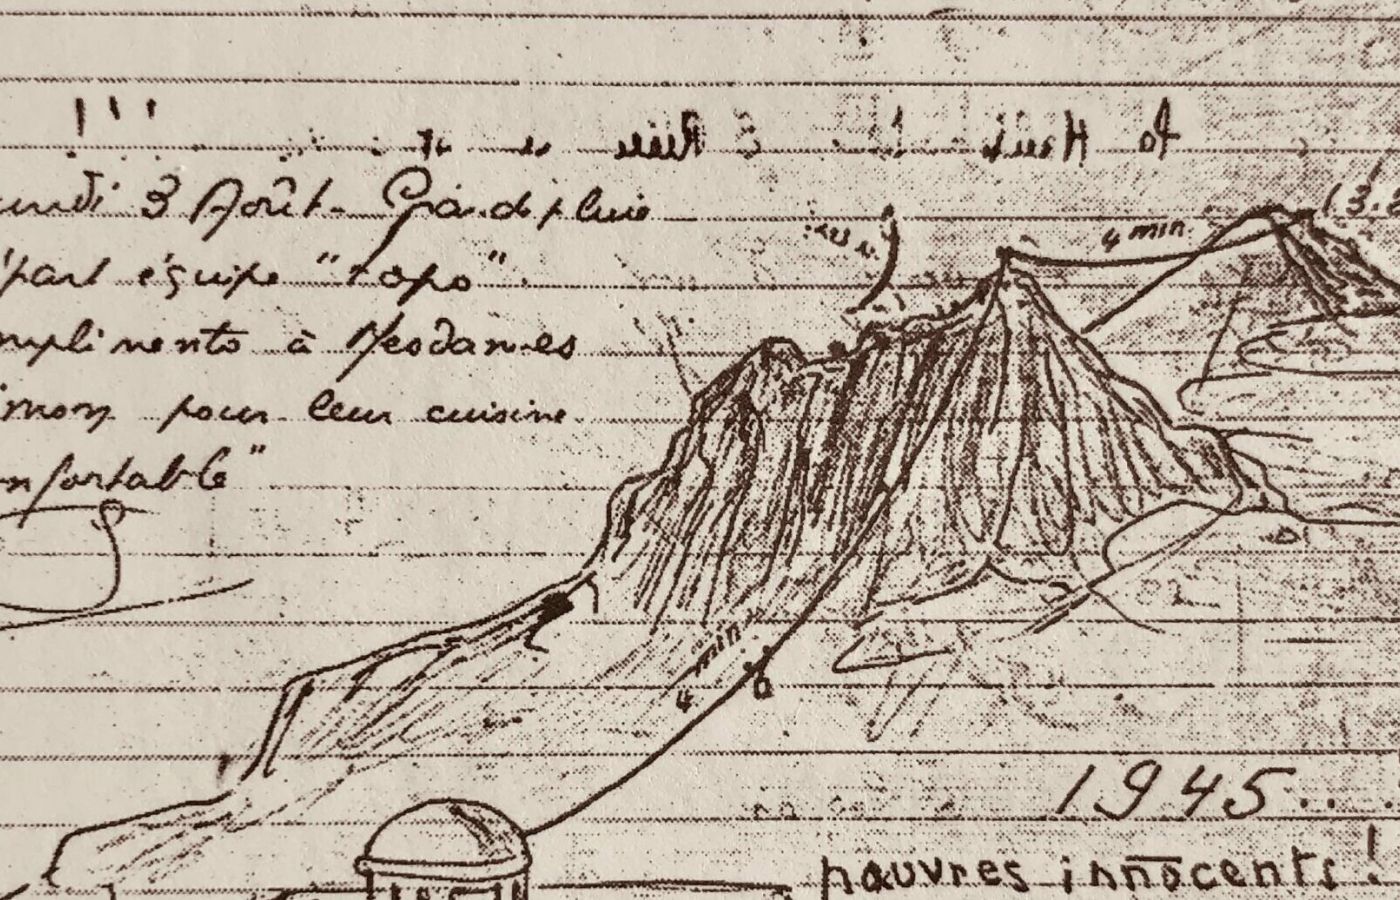 !!!
undi 3 Août. Grande pluie
part équipe "topo".
mpliments à Mesdames
imon pour leur cuisine
nfortable"
4 min.
4 min.
1945...
pauvres innocents!